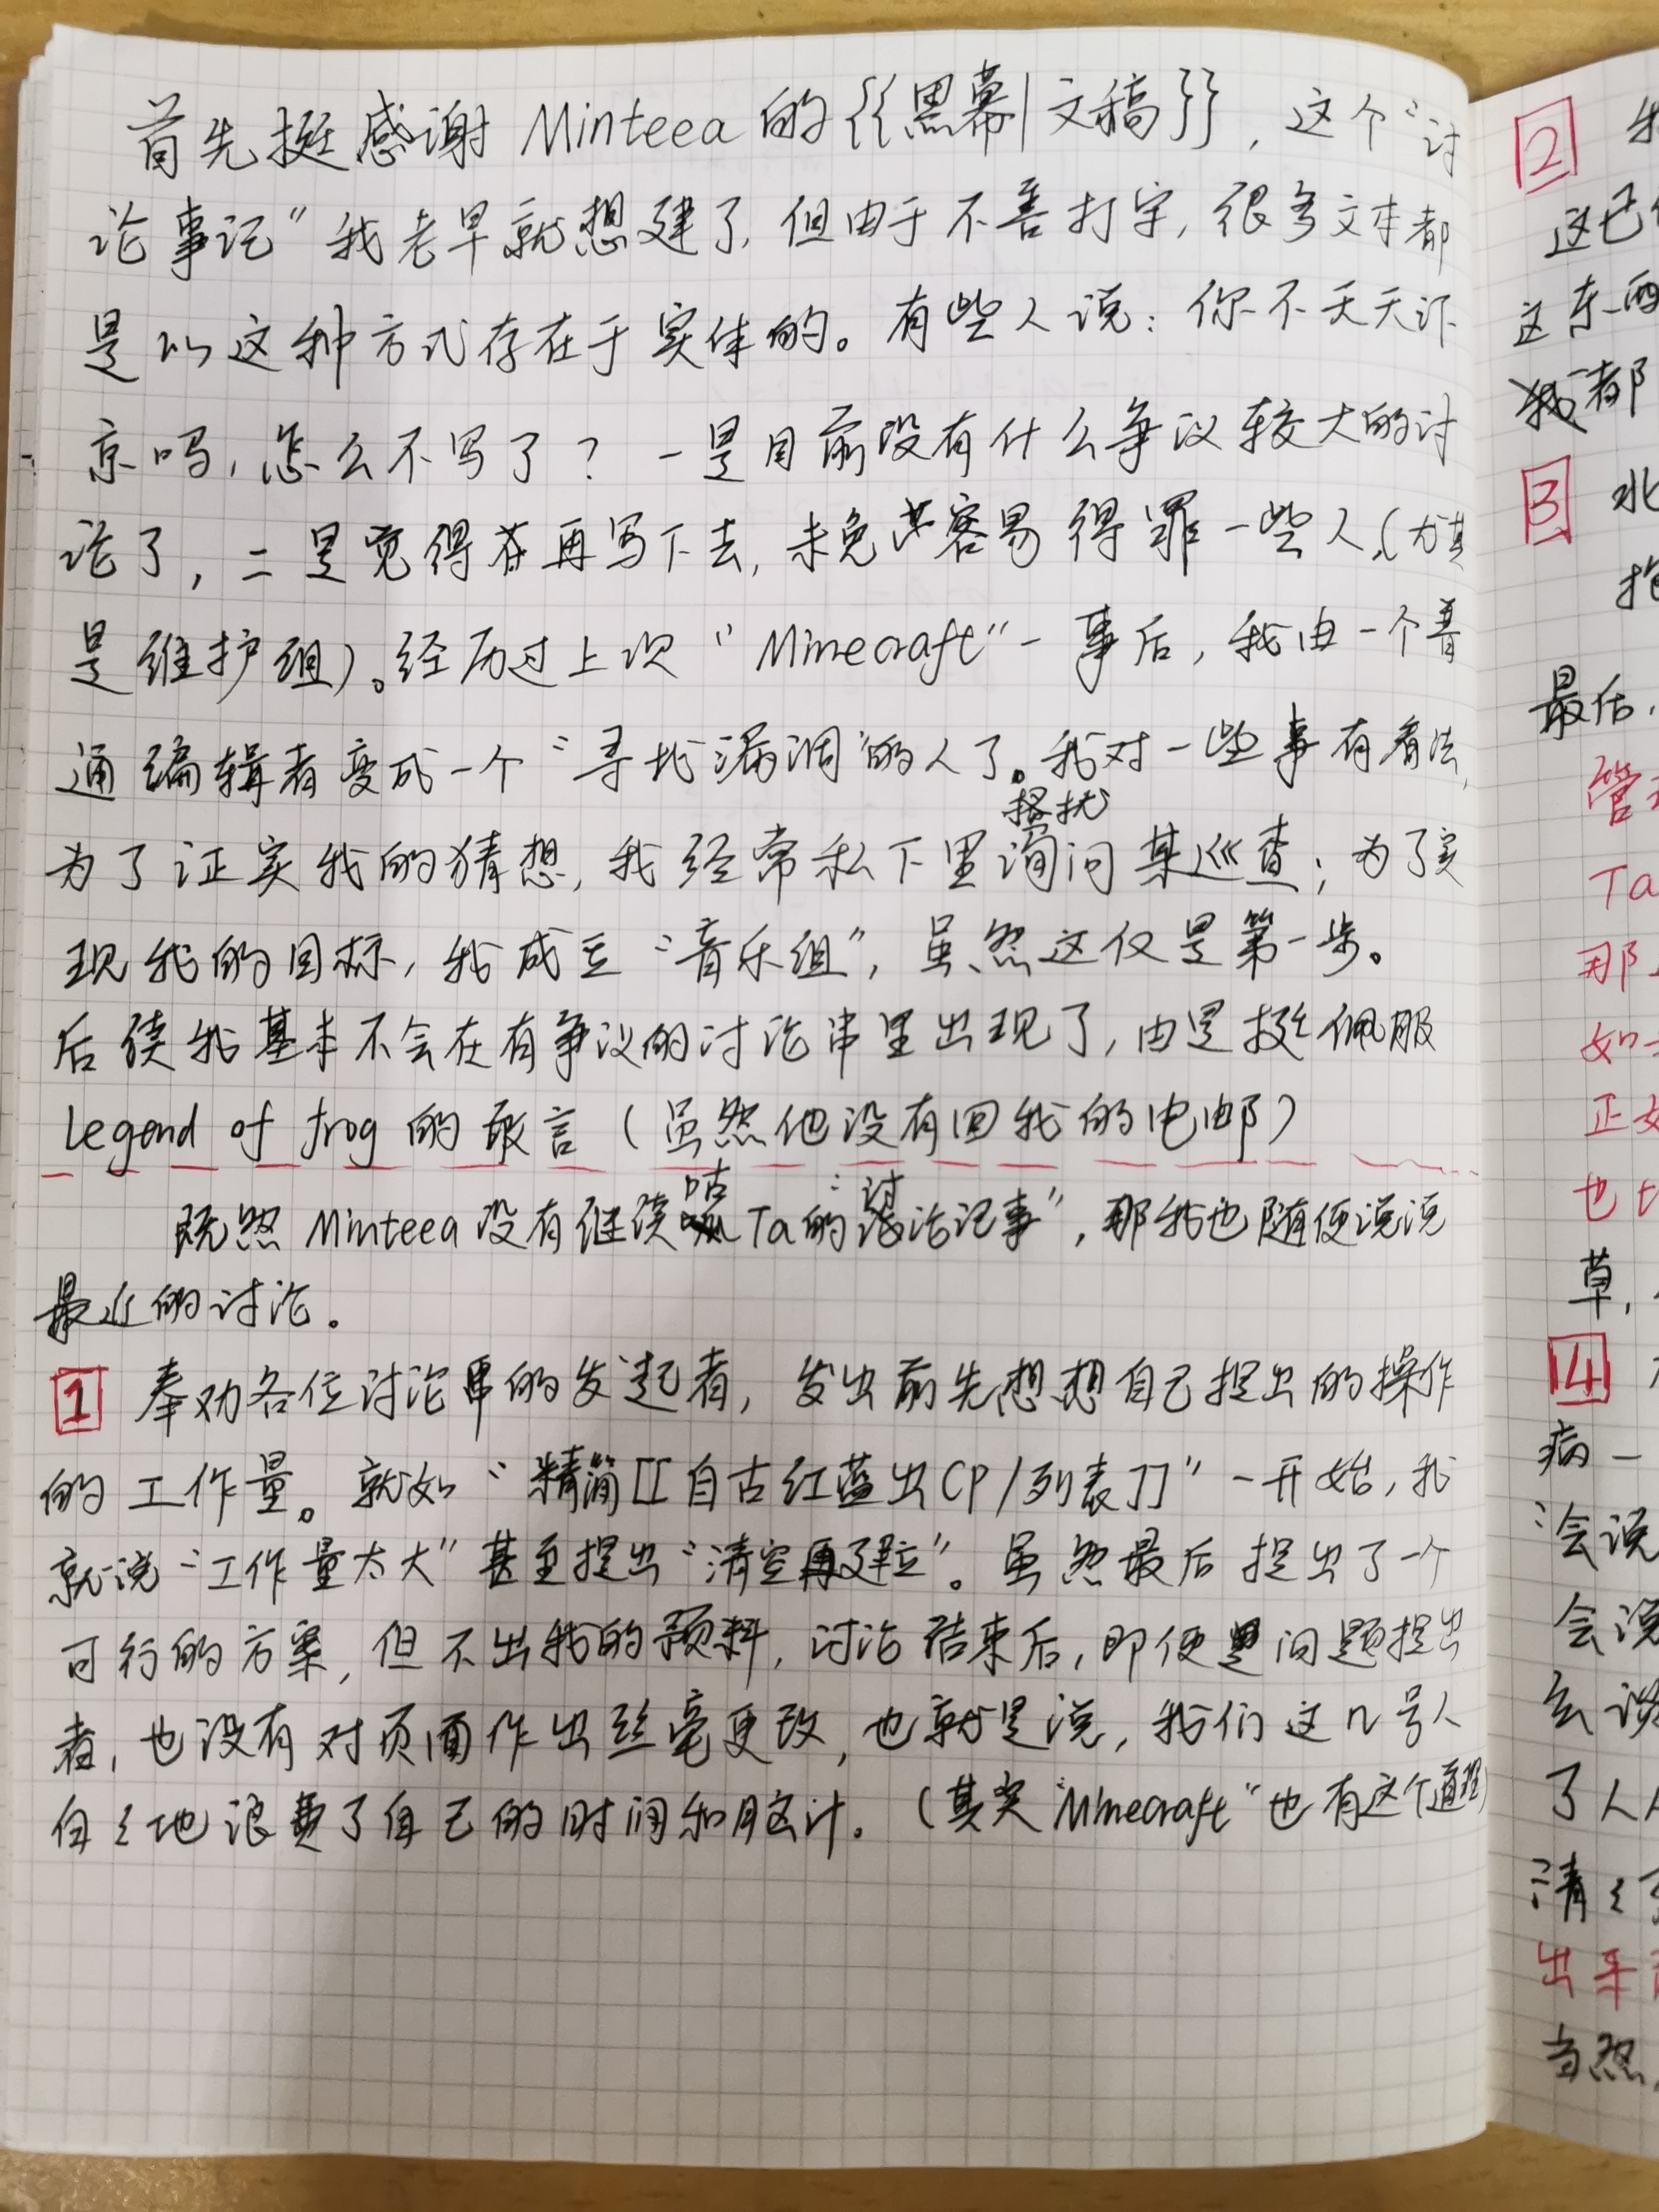 首先挺感谢 Minteea 的{{黑幕|文稿}}，这个“讨
论事记”我老早就想建了，但由于不善打字，很多文本都
是以这种方式存在于实体的。有些人说：你不天天讠下
京吗，怎么不写了？一是目前没有什么争议较大的讨
论了，二是觉得若再写下去，未免太容易得罪一些人（尤其
是维护组）。经历过上次“Minecraft”一事后，我由一个普
通编辑者变成一个“寻找漏洞”的人了。我对一些事有看法，
为了证实我的猜想，我经常私下里询问某巡查；为了实
骚扰
现我的目标，我成立“音乐组”，虽然这仅是第一步。
后续我基本不会在有争议的讨论串里出现了，由是挺佩服
Legend of frog 的敢言（虽然他没有回我的电邮）
既然 Minteea 没有继续咕 Ta 的“讨论记事”，那我也随便说说
最近的讨论。
1 奉劝各位讨论串的发起者，发出前先想想自己提出的操作
的工作量。就如“精简[[自古红蓝出CP/列表]]”一开始，我
就说“工作量太大”甚至提出“清空再建立”。虽然最后提出了一个
可行的方案，但不出我的预料，讨论结束后，即便是问题提出
者，也没有对页面作出丝毫更改，也就是说，我们这几号人
白々地浪费了自己的时间和脑汁。（其实“Minecraft”也有这个道理）
2
这已
这东西
我都
3 北
最后，
管理
Ta
那
如
正如
也
草，
4
病一
会说
会说
会说
了人
清々
出来
当然